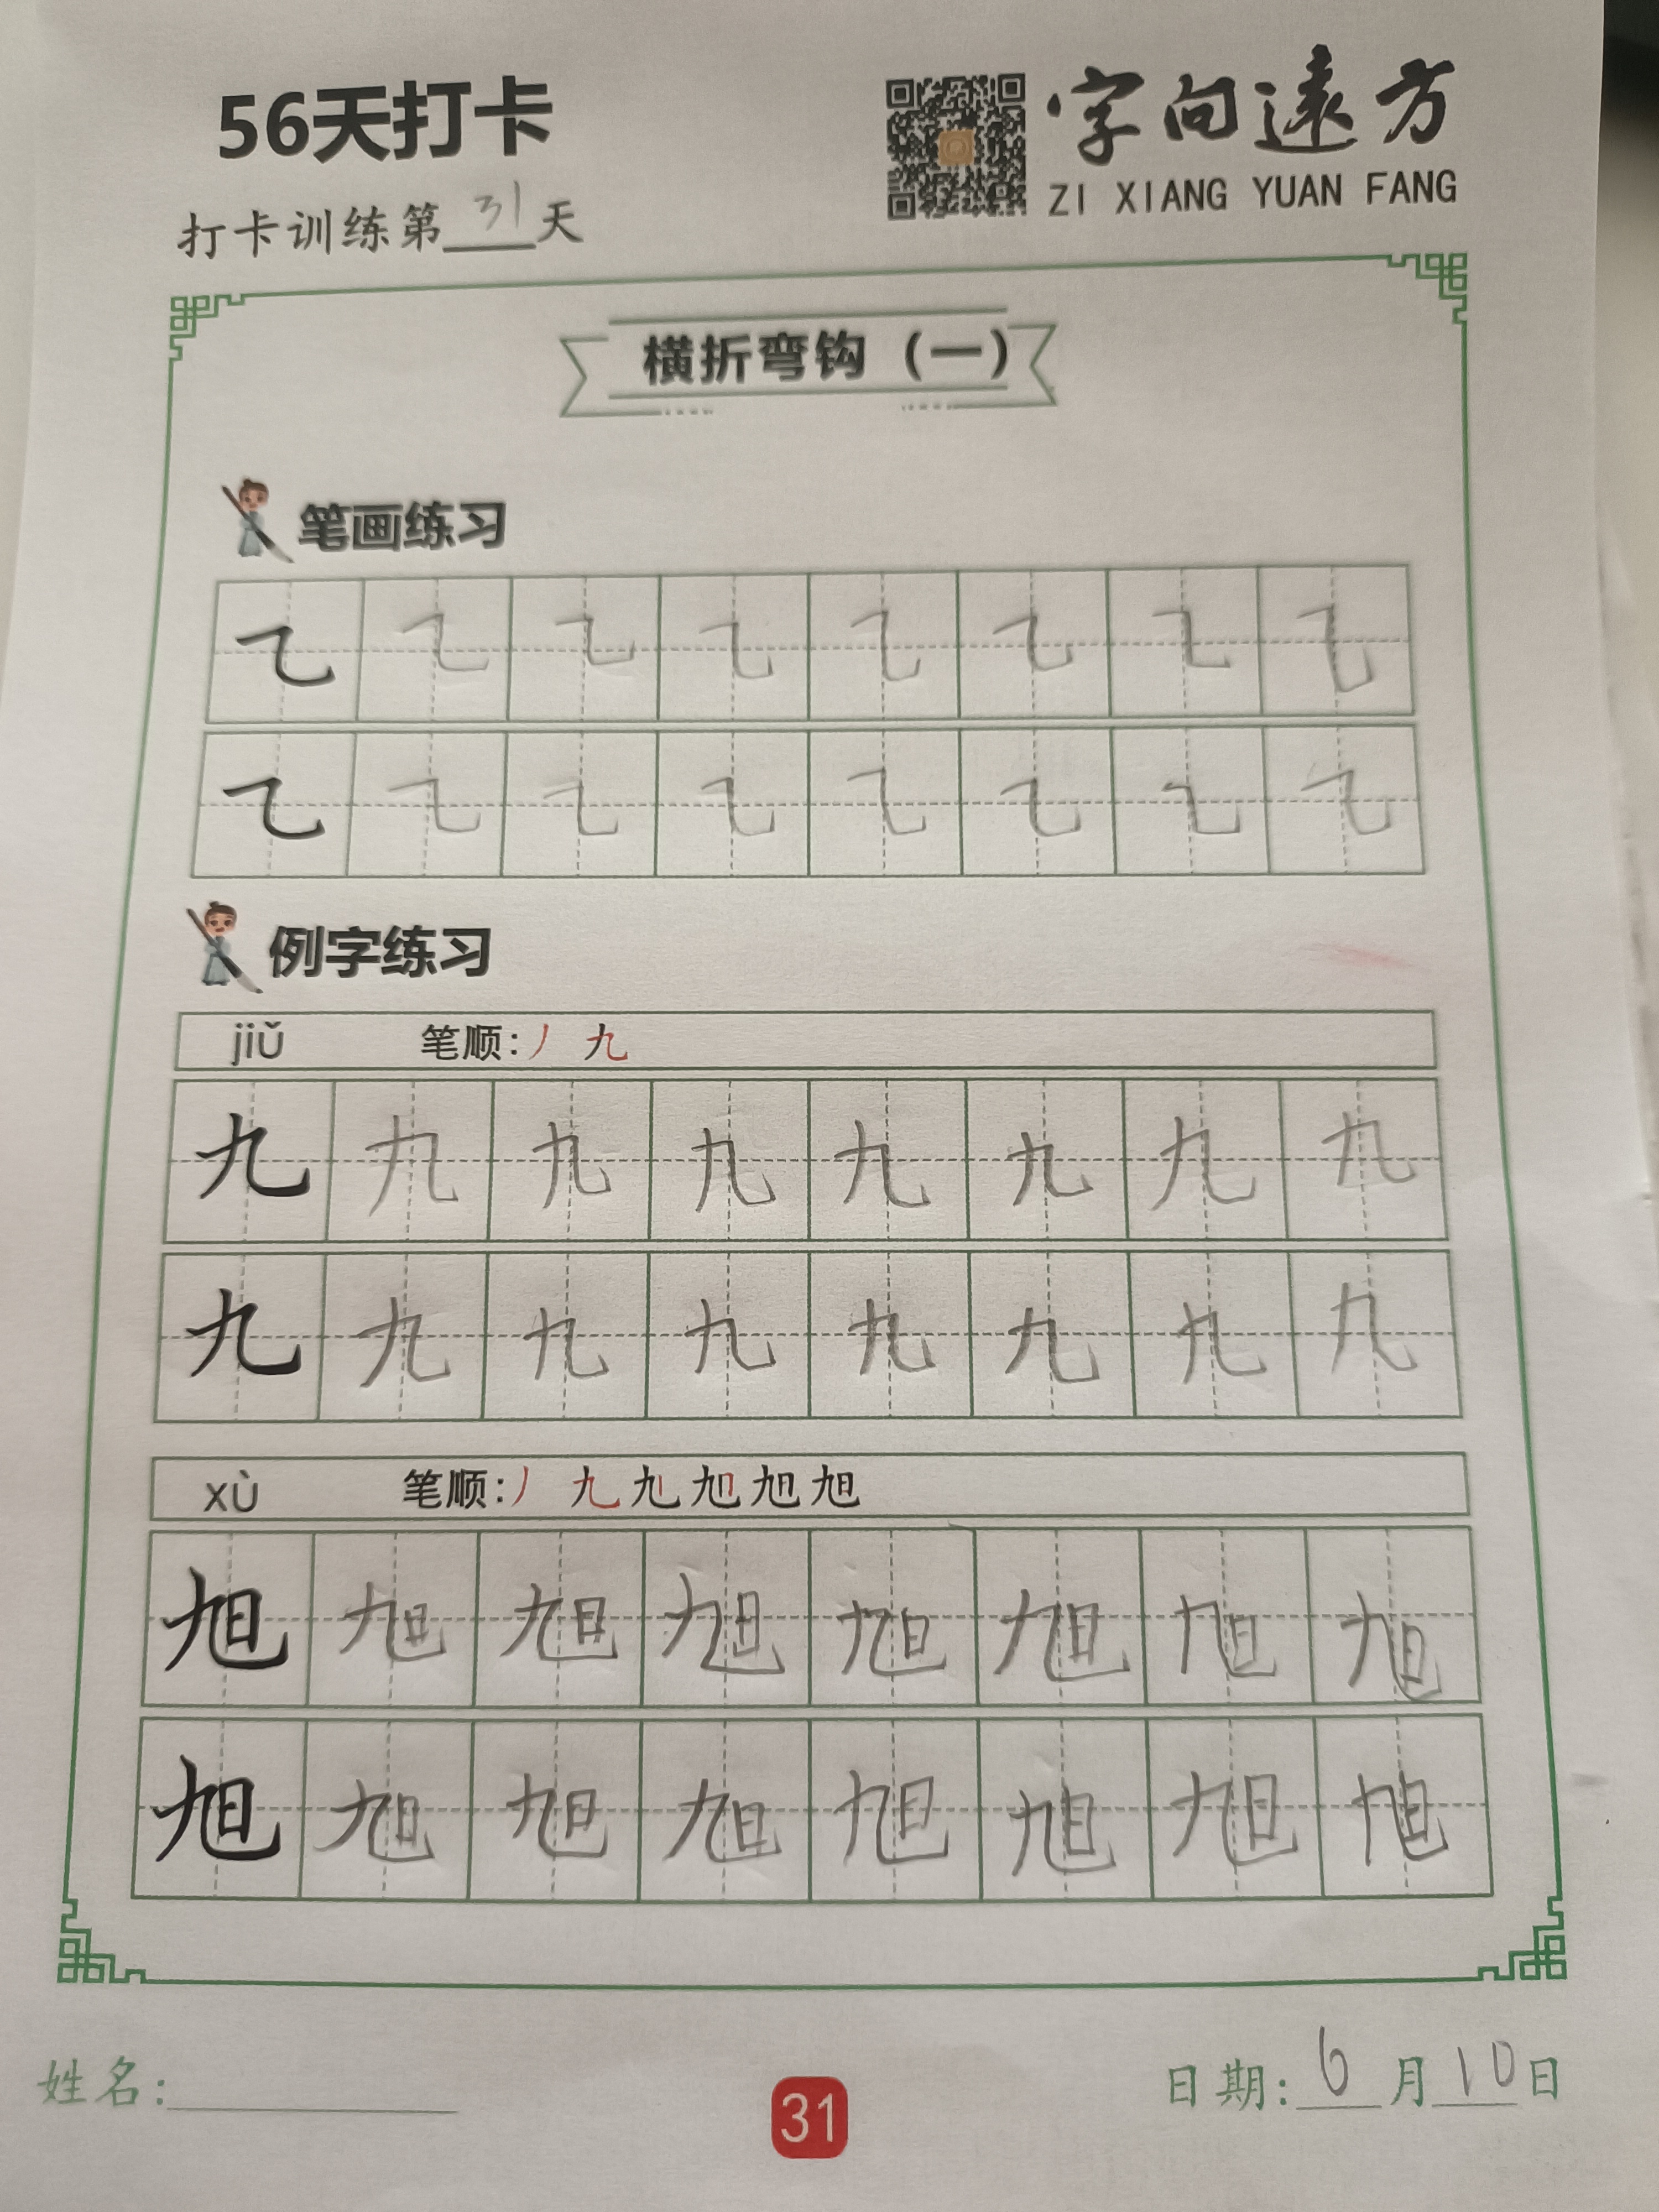 56天打卡
字向遠方
ZI XIANG YUAN FANG
打卡训练第31天
横折弯钩（一）
笔画练习
㇍ ㇍ ㇍ ㇍ ㇍ ㇍ ㇍ ㇍
㇍ ㇍ ㇍ ㇍ ㇍ ㇍ ㇍ ㇍
例字练习
jiǔ 笔顺：丿 九
九 九 九 九 九 九 九 九
九 九 九 九 九 九 九 九
xù 笔顺：丿 九 旭 旭 旭 旭
旭 旭 旭 旭 旭 旭 旭 旭
旭 旭 旭 旭 旭 旭 旭 旭
姓名：
31
日期：6月10日